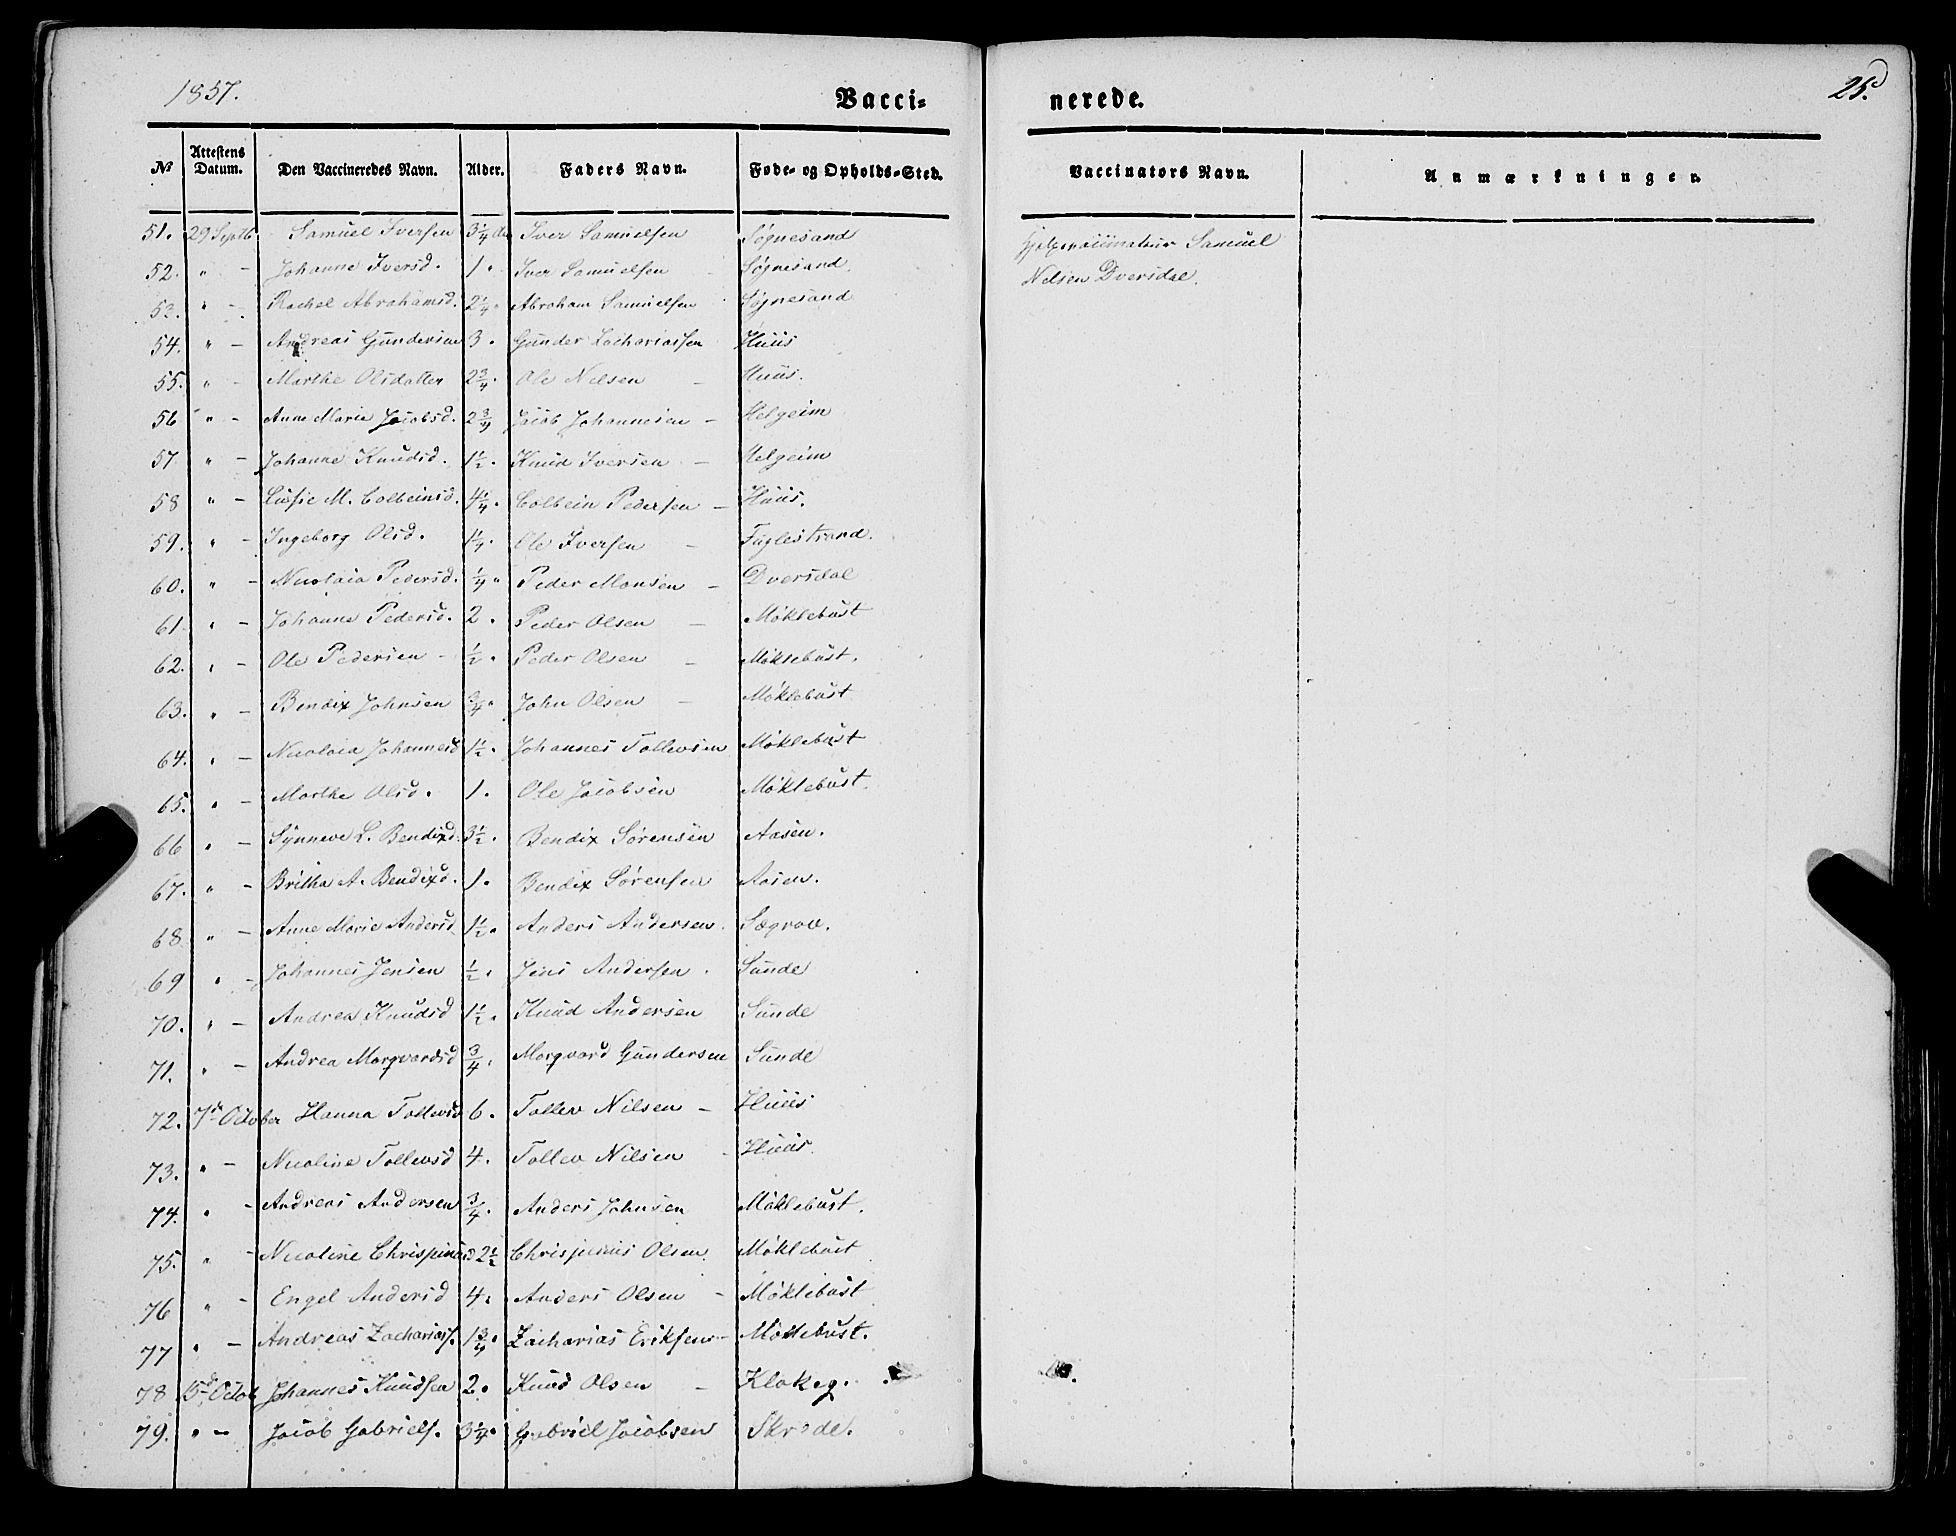 1857.
Vacci- nerede.
25.
No Attestens Datum. Den Vaccineredes Navn. Alder. Faders Navn. Føde- og Opholds-Sted. Vaccinators Navn. Anmærkninger.
51. 29 Septb. Samuel Iversen 3 1/4 Iver Samuelsen Søgnesand Hjelpevaccinateur Samuel
52. " - Johanne Iversd. 1 " Iver Samuelsen - Søgnesand. Nelsen Dversdal.
53. " - Rachel Abrahamsd. 2 1/4 " Abraham Samuelsen Søgnesand
54. " - Andreas Gundersen 3 " Gunder Zachariassen Huus
55. " - Marthe Olsdatter 2 3/4 " Ole Nelsen - Huus.
56 " - Anne Marie Jacobsd. 2 3/4 Jacob Johannesen - Helgeim
57 " - Johanne Knudsd. 1 1/2 " Knud Iversen - Helgeim
58 " - Lussie M. Colbeinsd. 4 1/4 " Colbein Pedersen - Huus.
59. " - Ingeborg Olsd. 1 1/4 " Ole Iversen - Fuglestrand.
60. " - Nicolaia Pedersd. 1/4 " Peder Monsen - Dversdal
61 " - Johanne Pedersd. 2 " Peder Olsen - Møklebust
62. " - Ole Pedersen - 1/2 " Peder Olsen - Møklebust.
63. " - Bendix Johnsen 3/4 " John Olsen - Møklebust
64. " - Nicolaia Johannesd 1 1/2 " Johannes Tollevsen Møklebust
65. " - Marthe Olsd. 1 " Ole Jacobsen Møklebust.
66 " - Synneve L. Bendixd. 3 1/2 " Bendix Sørensen Aasen.
67. " - Britha A. Bendixd. 1 " Bendix Sørensen Aasen.
68 " - Anne Marie Andersd 1 1/2 " Anders Andersen. Sægrow.
69 " - Johannes Jensen 1/2 " Jens Andersen. Sunde
70. " - Andrea Knudsd 1 1/2 " Knud Andersen Sunde
71. " - Andrea Marqvardsd 3/4 " Marqvard Gundersen Sunde
72. 7de October Hanna Tollevsd 6 " Tollev Nilsen - Huus
73. " - Nicoline Tollevsd 4 " Tollev Nilsen - Huus.
74. " - Andreas Andersen 3/4 " Anders Johnsen Møklebust.
75. " - Nicoline Chrispinusd 2 1/2 Chrispinus Olsen. Møklebust
76 " - Engel Andersd 4 " Anders Olsen - Møklebust
77 " - Andreas Zachariass. 1 3/4 " Zacharias Eriksen - Møklebust.
78 15de Octob Johannes Knudsen 2 " Knud Olsen - Klakeg.
79. " - Jacob Gabriels. 3 1/4 " Gabriel Jacobsen Skrede.